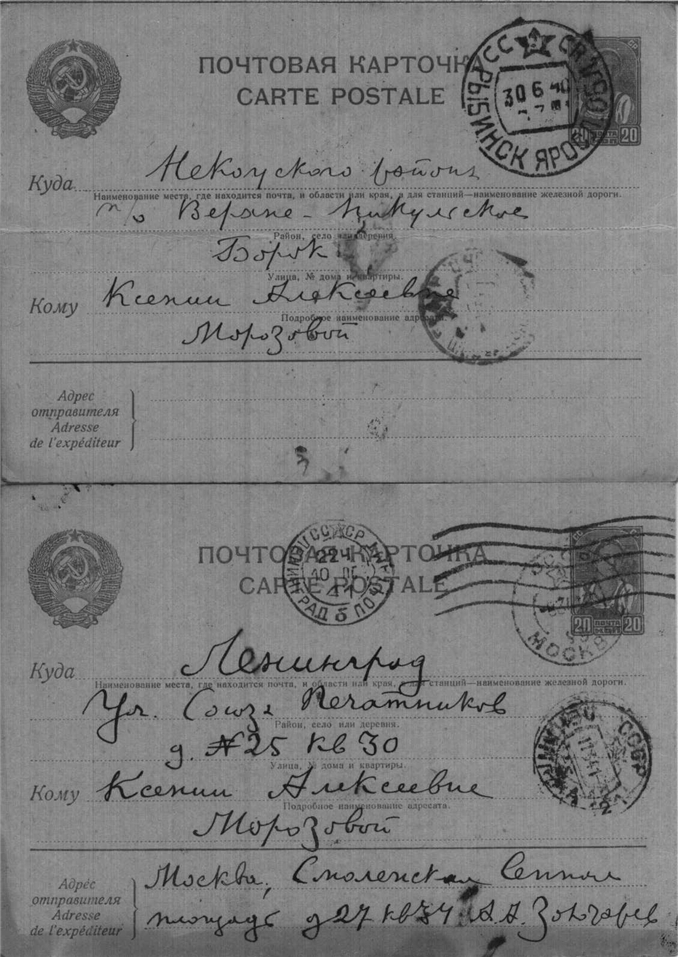 ПОЧТОВАЯ КАРТОЧК
CARTE POSTALE
СССР
30 6 40
РЫБИНСК ЯРОС
ПОЧТА
20 20
Куда Некоузского района
Наименование места, где находится почта, и области или края, а для станций—наименование железной дороги.
п/о Верхне-Никульское
Район, село или деревня.
Борок
Улица, № дома и квартиры.
Кому Ксении Алексеевне
Подробное наименование адресата.
Морозовой
Адрес
отправителя
Adresse
de l'expéditeur
ПОЧТОВАЯ КАРТОЧКА
CARTE POSTALE
СССР
22Ч
10
41
ЛЕНИНГРАД
МОСКВА
ПОЧТА
20 20
Куда Ленинград
Наименование места, где находится почта, и области или края, а для станций—наименование железной дороги.
Ул. Союза Печатников
Район, село или деревня.
д. №25 кв 30
Улица, № дома и квартиры.
СССР
Кому Ксении Алексеевне
Подробное наименование адресата.
Морозовой
Адрес
отправителя
Adresse
de l'expéditeur
Москва, Смоленская Сенная
площадь д 27 кв 34 А.А.